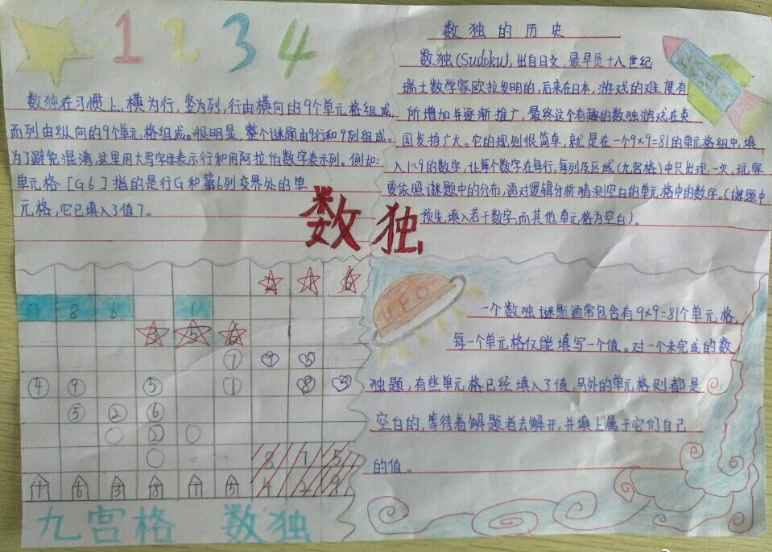 1 2 3 4
数独在习惯上,横为行,竖为列,行由横向的9个单元格组成,
而列由纵向的9个单元格组成。很明显,整个谜题由9行和9列组成。
为了避免混淆,这里用大写字母表示行和用阿拉伯数字表示列。例如:
单元格[G6]指的是行G和第6列交界处的单
元格,它已填入了值7。
数独的历史
数独(Sudoku),出自日文,最早是十八世纪
瑞士数学家欧拉发明的,后来在日本,游戏的难度有
所增加并逐渐推广,最终这个有趣的数独游戏在美
国发扬广大。它的规则很简单,就是在一个9×9=81的单元格组中,填
入1~9的数字,让每个数字在每行,每列及区域(九宫格)中只出现一次。玩家
要依照谜题中的分布,通过逻辑分析猜测空白的单元格中的数字。(谜题中
预先填入若干数字,而其他单元格为空白)。
数独
7 8 6 1
7 9 5
4 9 5 1 8 3
3 2 6
2
8 1 5
九宫格 数独
UFO
一个数独谜题通常包含有9×9=81个单元格,
每一个单元格仅能填写一个值。对一个未完成的数
独题,有些单元格已经填入了值,另外的单元格则都是
空白的,等待着解题者去解开,并填上属于它们自己
的值。